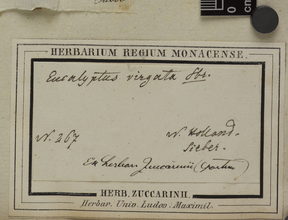 HERBARIUM REGIUM MONACENSE.
Eucalyptus virgata Sbr.
N. 267
N. Holland.
Sieber.
Ex herbar. Zuccarinii (partim)
HERB. ZUCCARINII
Herbar. Univ. Ludov. Maximil.